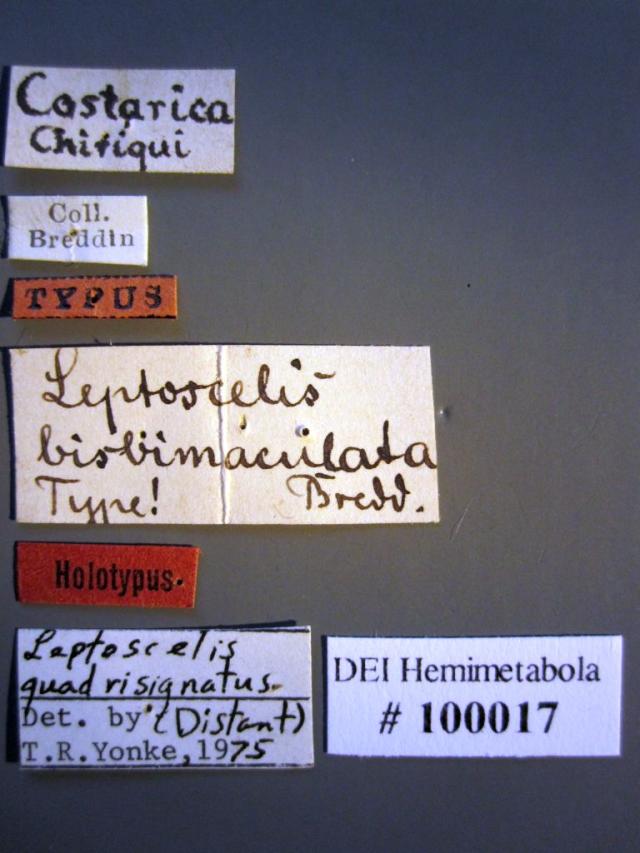 Costarica
Chiriqui
Coll.
Breddin
TYPUS
Leptoscelis
bisbimaculata
Type! Bredd.
Holotypus.
Leptoscelis
quadrisignatus
Det. by (Distant)
T.R.Yonke, 1975
DEI Hemimetabola
# 100017